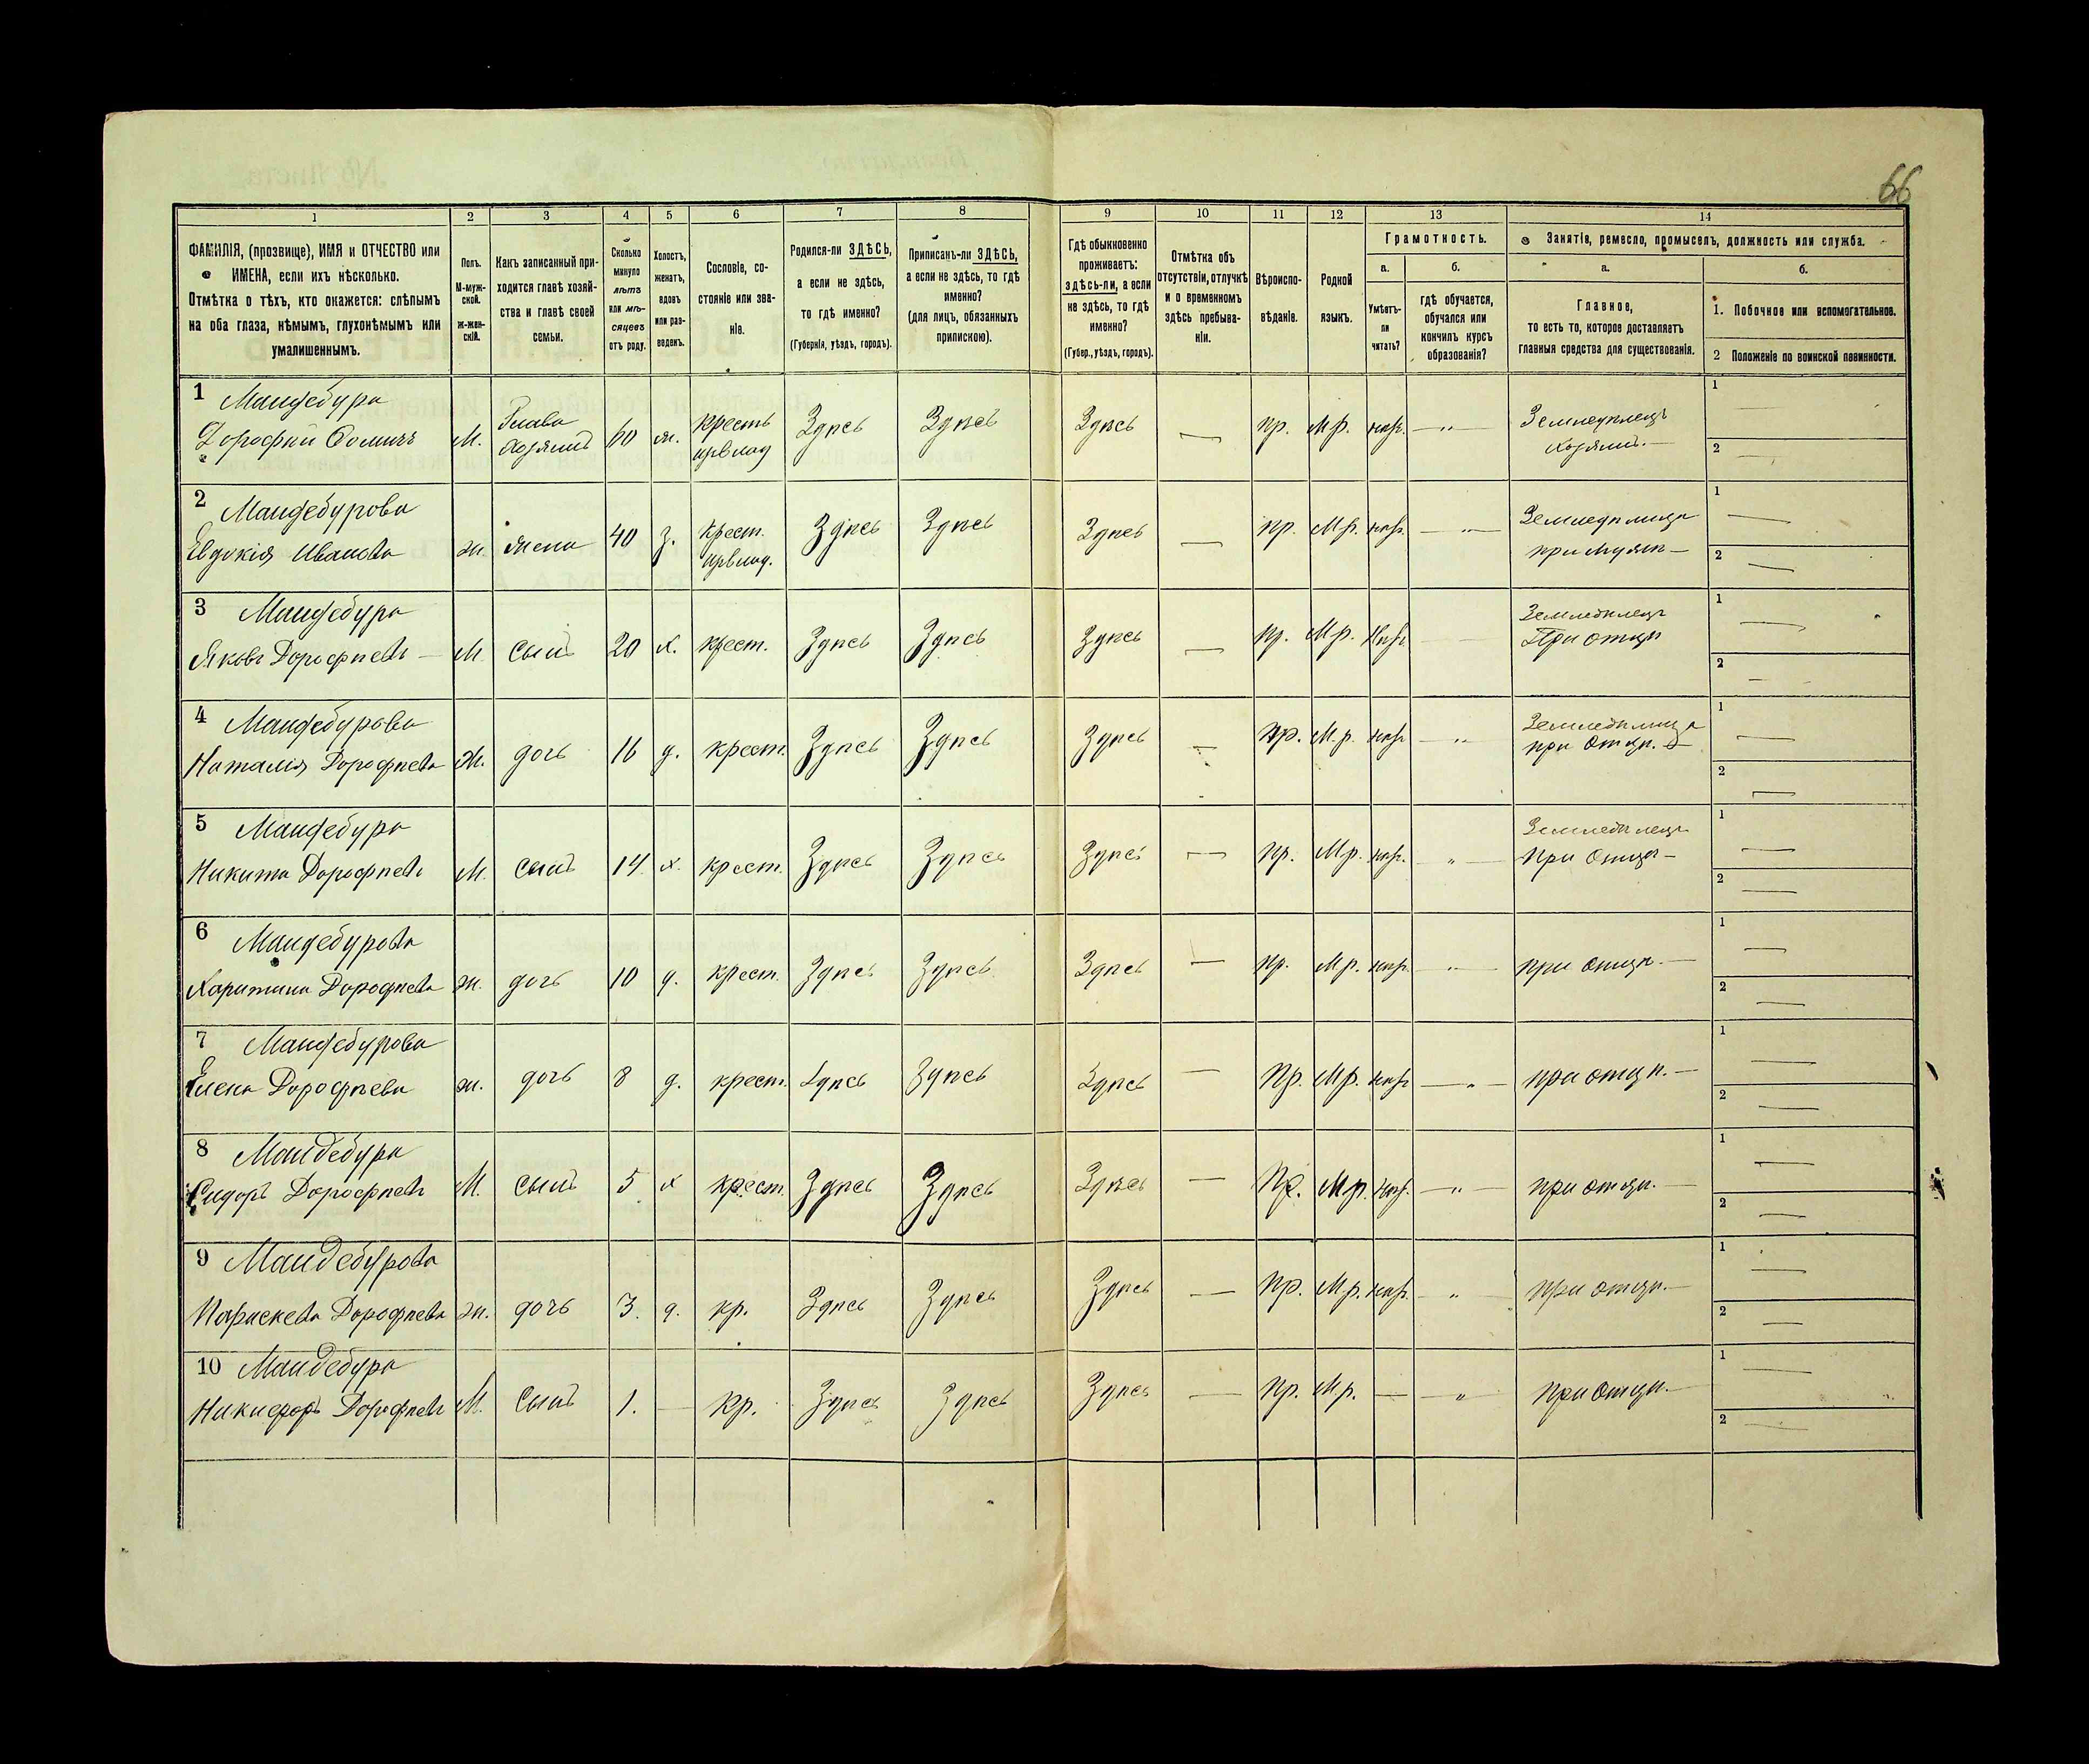 66
1 2 3 4 5 6 7 8 9 10 11 12 13 14
ФАМИЛІЯ, (прозвище), ИМЯ и ОТЧЕСТВО или
ИМЕНА, если ихъ нѣсколько.
Отмѣтка о тѣхъ, кто окажется: слѣпымъ
на оба глаза, нѣмымъ, глухонѣмымъ или
умалишеннымъ.
Полъ.
М-муж-
ской.
ж-жен-
скій.
Какъ записанный при-
ходится главѣ хозяй-
ства и главѣ своей
семьи.
Сколько
минуло
лѣтъ
или мѣ-
сяцевъ
отъ роду.
Холостъ,
женатъ,
вдовъ
или раз-
веденъ.
Сословіе, со-
стояніе или зва-
ніе.
Родился-ли ЗДѢСЬ,
а если не здѣсь,
то гдѣ именно?
(Губернія, уѣздъ, городъ).
Приписанъ-ли ЗДѢСЬ,
а если не здѣсь, то гдѣ
именно?
(для лицъ, обязанныхъ
припискою).
Гдѣ обыкновенно
проживаетъ:
здѣсь-ли, а если
не здѣсь, то гдѣ
именно?
(Губер., уѣздъ, городъ).
Отмѣтка объ
отсутствіи, отлучкѣ
и о временномъ
здѣсь пребыва-
ніи.
Вѣроиспо-
вѣданіе.
Родной
языкъ.
Грамотность.
а.
Умѣетъ-
ли
читать?
б.
гдѣ обучается,
обучался или
кончилъ курсъ
образованія?
Занятіе, ремесло, промыселъ, должность или служба.
а.
Главное,
то есть то, которое доставляетъ
главныя средства для существованія.
б.
1. Побочное или вспомогательное.
2 Положеніе по воинской повинности.
1 Мандебура
Дорофѣй Ѳомичъ М. Глава Хозяинъ 60 ж. крест Здѣсь Здѣсь Здѣсь — Пр. М.р. — „ — Земледѣлецъ
Хозяинъ. —
2 Мандебурова
Евдокія Иванова ж. жена 40 з. Крест. Здѣсь Здѣсь Здѣсь — Пр. М.р. — „ — Земледѣлица
при мужѣ —
3 Мандебура
Яковъ Дорофѣевъ — М сынъ 20 х. крест. Здѣсь Здѣсь Здѣсь — Пр. М.р. Земледѣлецъ
При отцѣ
4 Мандебурова
Наталія Дорофѣева ж. дочь 16 д. крест. Здѣсь Здѣсь Здѣсь — Пр. М.р. — „ — Земледѣлица
при отцѣ. —
5 Мандебура
Никита Дорофѣевъ М. сынъ 14 х. крест. Здѣсь Здѣсь Здѣсь — Пр. М.р. „ — Земледѣлецъ
При Отцѣ —
6 Мандебурова
Харитина Дорофѣева ж. дочь 10 д. крест. Здѣсь Здѣсь Здѣсь — Пр. М.р. — „ — при отцѣ. —
7 Мандебурова
Елена Дорофѣева ж. дочь 8 д. крест. Здѣсь Здѣсь Здѣсь — Пр. М.р. — „ — при отцѣ. —
8 Мандебура
Сидоръ Дорофѣевъ М. сынъ 5 х крест. Здѣсь Здѣсь Здѣсь — Пр. М.р. — „ — при отцѣ. —
9 Мандебурова
Параскева Дорофѣева ж. дочь 3. д. кр. Здѣсь Здѣсь Здѣсь — Пр. М.р. — „ — при отцѣ. —
10 Мандебура
Никифоръ Дорофѣевъ М. Сынъ 1. — Кр. Здѣсь Здѣсь Здѣсь — Пр. М.р. — — „ — При отцѣ. —